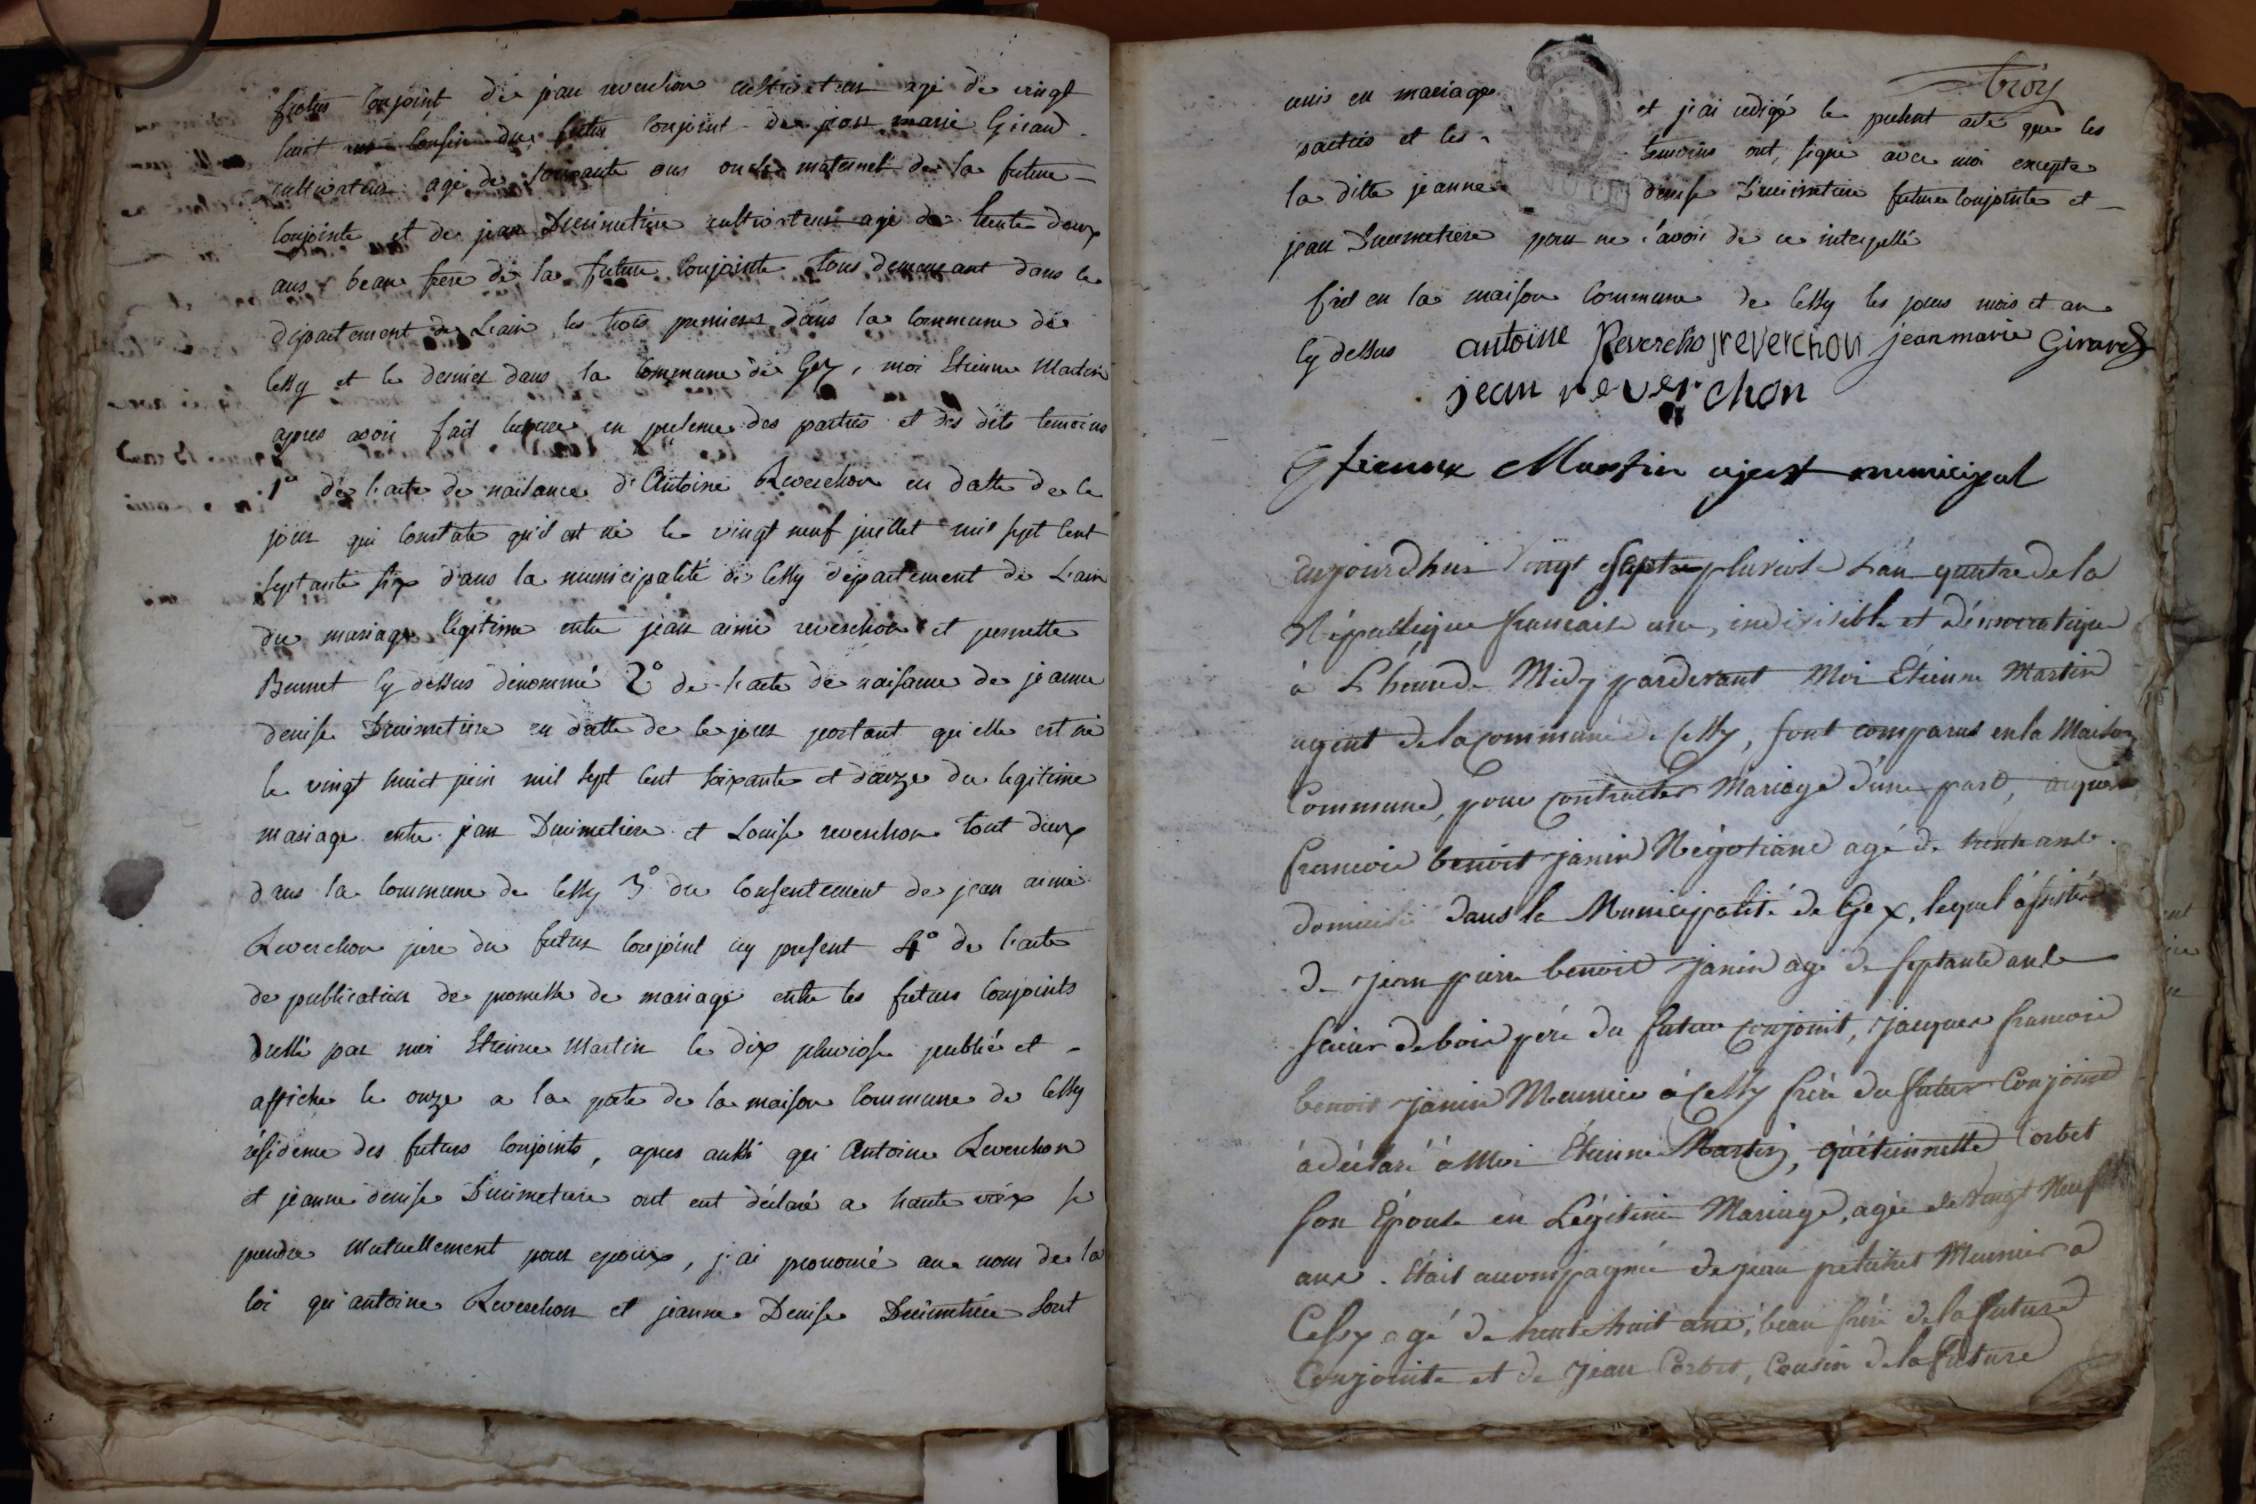 futur conjoint de jean reverchon cultivateur agé de vingt
huit ans cousin du futur conjoint de jean marie Girard
cultivateur agé de soixante ans oncle maternel de la future
conjointe et de jean Ducimetiere cultivateur agé de trente deux
ans beau frere de la future conjointe tous demeurant dans le
département de L'ain les trois premiers dans la commune de
Cessy et le dernier dans la commune de Gex, moi Etienne Martin
apres avoir fait lecture en presence des parties et des dits temoins
1° de l'acte de naisance d'Antoine Reverchon en datte de ce
jour qui constate qu'il est né le vingt neuf juillet mil sept cent
septante six dans la municipalité de Cessy département de L'ain
du mariage légitime entre jean aimé reverchon et pernette
cy dessus dénommé 2° de l'acte de naisance de jeanne
denise Ducimetiere en datte de ce jour portant qu'elle est né
le vingt huit juin mil sept cent soixante et douze du legitime
mariage entre jean Ducimetiere et Louise reverchon tout deux
dans la commune de Cessy 3° du consentement de jean aimé
Reverchon père du futur conjoint icy present 4° de l'acte
de publication de promesse de mariage entre les futurs conjoints
dressé par moi Etienne Martin le dix pluviose publié et
affiché le onze a la porte de la maison commune de Cessy
résidence des futurs conjoints, apres aussi qu'Antoine Reverchon
et jeanne denise Ducimetiere ont eut déclaré a haute voix se
prendre mutuellement pour epoux, j'ai prononcé au nom de la
loi qu'antoine Reverchon et jeanne Denise Ducimetiere sont
trois
unis en mariage et j'ai redigé le present acte que les
parties et les temoins ont signé avec moi excepte
la ditte jeanne denise Ducimetiere future conjointe et
jean Ducimetiere pour ne savoir de ce interpellé
fait en la maison commune de Cessy les jours mois et an
cy dessus antoine Reverchon reverchon jean marie Girard
jean reverchon
Etienne Martin agent municipal
aujourdhui vingt Sept pluviose L'an quatre de la
République francaise une, indivisible et Démocratique
à L'heure de Midy pardevant Moi Etienne Martin
agent de la commune de Cessy, sont comparus en la Maison
Commune, pour contracter Mariage d'une part,
francois benoit janin Négotiant agé de trente ans
domicilié dans la Municipalité de Gex, lequel assisté
de jean pierre benoit janin agé de septante ans
scieur de bois pére du futur conjoint, jacques francois
benoit janin Meunier à Cessy frére du futur Conjoint
à déclaré à Moi Etienne Martin, qu'étiennette Corbet
son Epouse en Légitime Mariage, agée de vingt Neuf
ans. Etait accompagnée de jean Meunier à
Cessy agé de trente huit ans, beau frére de la future
Conjointe et de jean Corbet, Cousin de la future